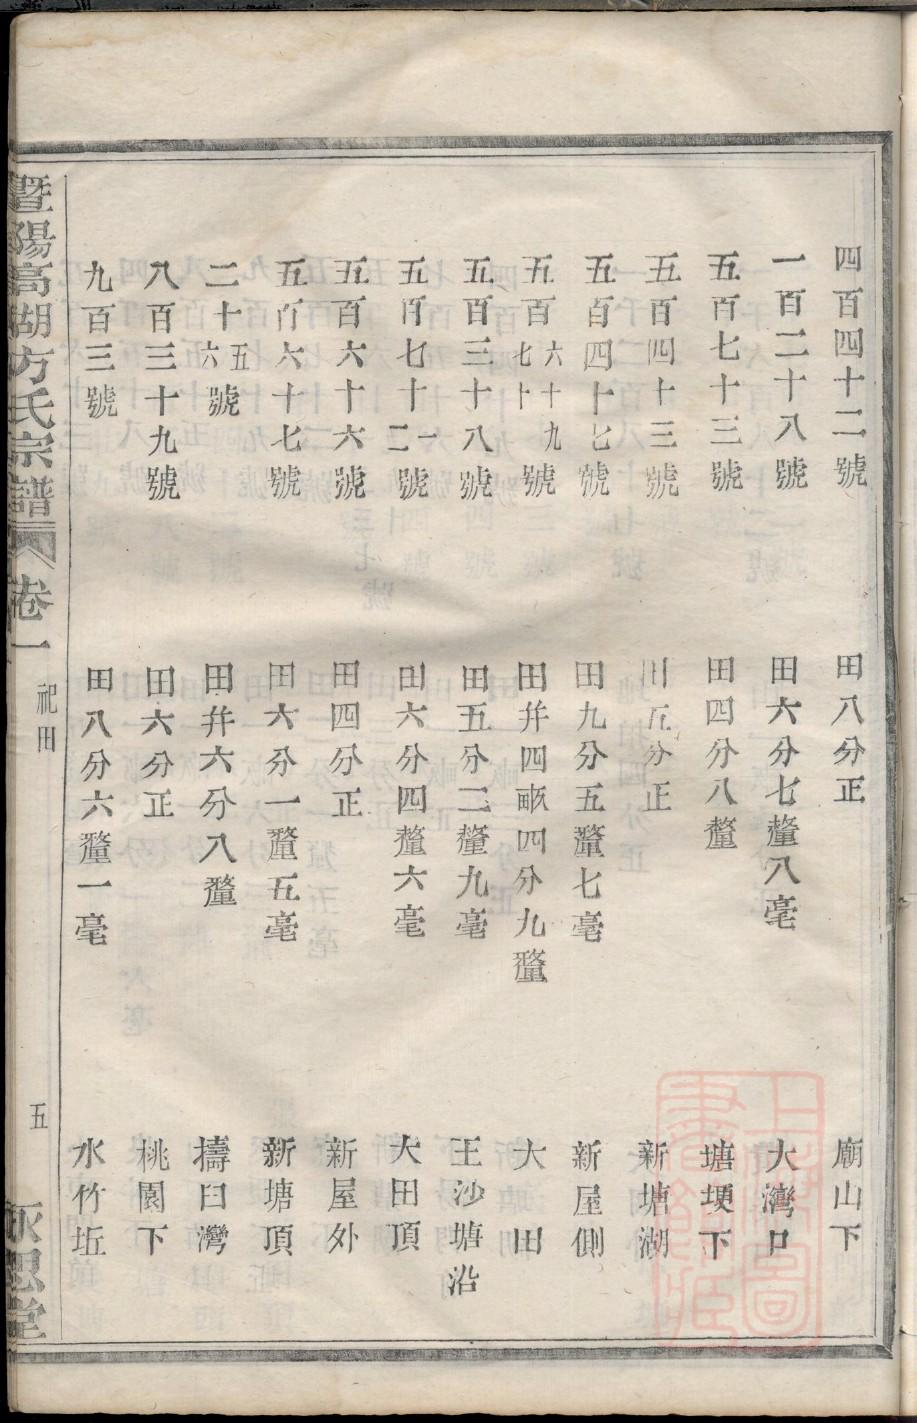 四百四十二號　田八分正　廟山下
一百二十八號　田六分七釐八毫　大灣口
五百七十三號　田四分八釐　塘埂下
五百四十三號　田五分正　新塘湖
五百四十七號　田九分五釐七毫　新屋側
五百六十九七十號　田并四畝四分九釐　大田
五百三十八號　田五分二釐九毫　王沙塘沿
五百七十一二號　田六分四釐六毫　大田頂
五百六十六號　田四分正　新屋外
五百六十七號　田六分一釐五毫　新塘頂
二十五六號　田并六分八釐　擣臼灣
八百三十九號　田六分正　桃園下
九百三號　田八分六釐一毫　水竹坵
暨陽高湖方氏宗譜　卷一　祀田　五　永思堂
上海圖書館藏